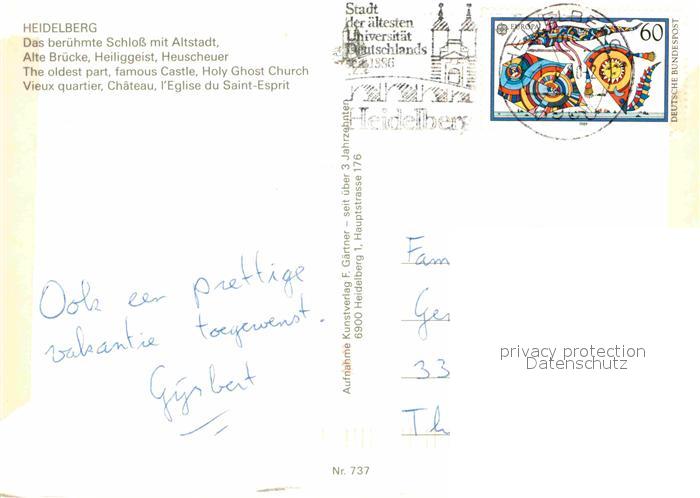 HEIDELBERG
Das berühmte Schloß mit Altstadt,
Alte Brücke, Heiliggeist, Heuscheuer
The oldest part, famous Castle, Holy Ghost Church
Vieux quartier, Château, l'Eglise du Saint-Esprit
Stadt
der ältesten
Universität
Deutschlands
1386
Heidelberg
EUROPA
60
DEUTSCHE BUNDESPOST
1989
Aufnahme Kunstverlag F. Gärtner – seit über 3 Jahrzehnten
6900 Heidelberg 1, Hauptstrasse 176
Ook een prettige
vakantie toegewenst.
Gijsbert
Fam
Ge
33
Th
privacy protection
Datenschutz
Nr. 737